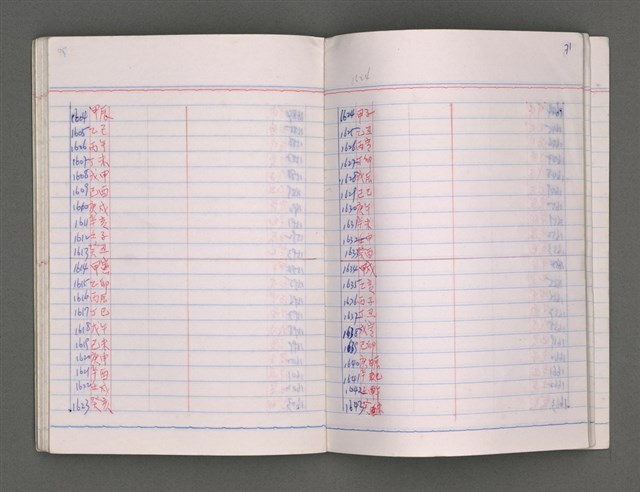 1604 甲辰
1605 乙巳
1606 丙午
1607 丁未
1608 戊申
1609 己酉
1610 庚戌
1611 辛亥
1612 壬子
1613 癸丑
1614 甲寅
1615 乙卯
1616 丙辰
1617 丁巳
1618 戊午
1619 己未
1620 庚申
1621 辛酉
1622 壬戌
1623 癸亥
31
1624
1624 甲子
1625 乙丑
1626 丙寅
1627 丁卯
1628 戊辰
1629 己巳
1630 庚午
1631 辛未
1632 壬申
1633 癸酉
1634 甲戌
1635 乙亥
1636 丙子
1637 丁丑
1638 戊寅
1639 己卯
1640 庚辰
1641 辛巳
1642 壬午
1643 癸未